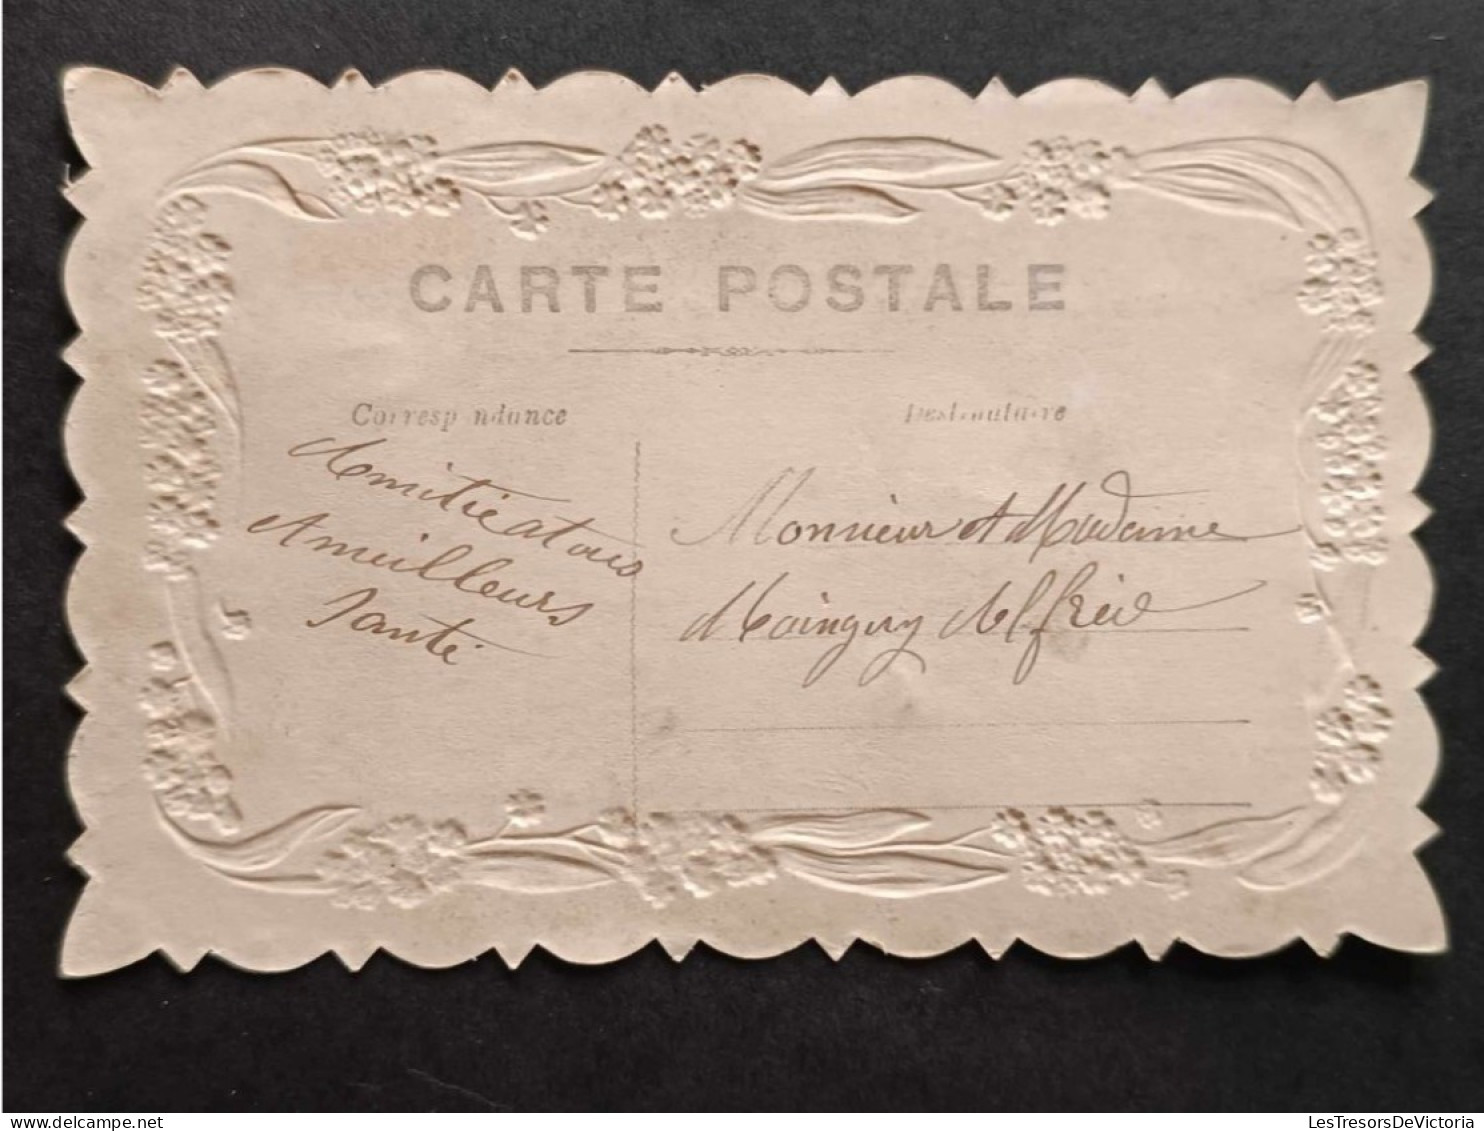 CARTE POSTALE
Correspondance
Destinataire
Amitié a tous
A meilleurs
Santé
Monsieur et Madame
Mainguy Alfred
LesTresorsDeVictoria
delcampe.net